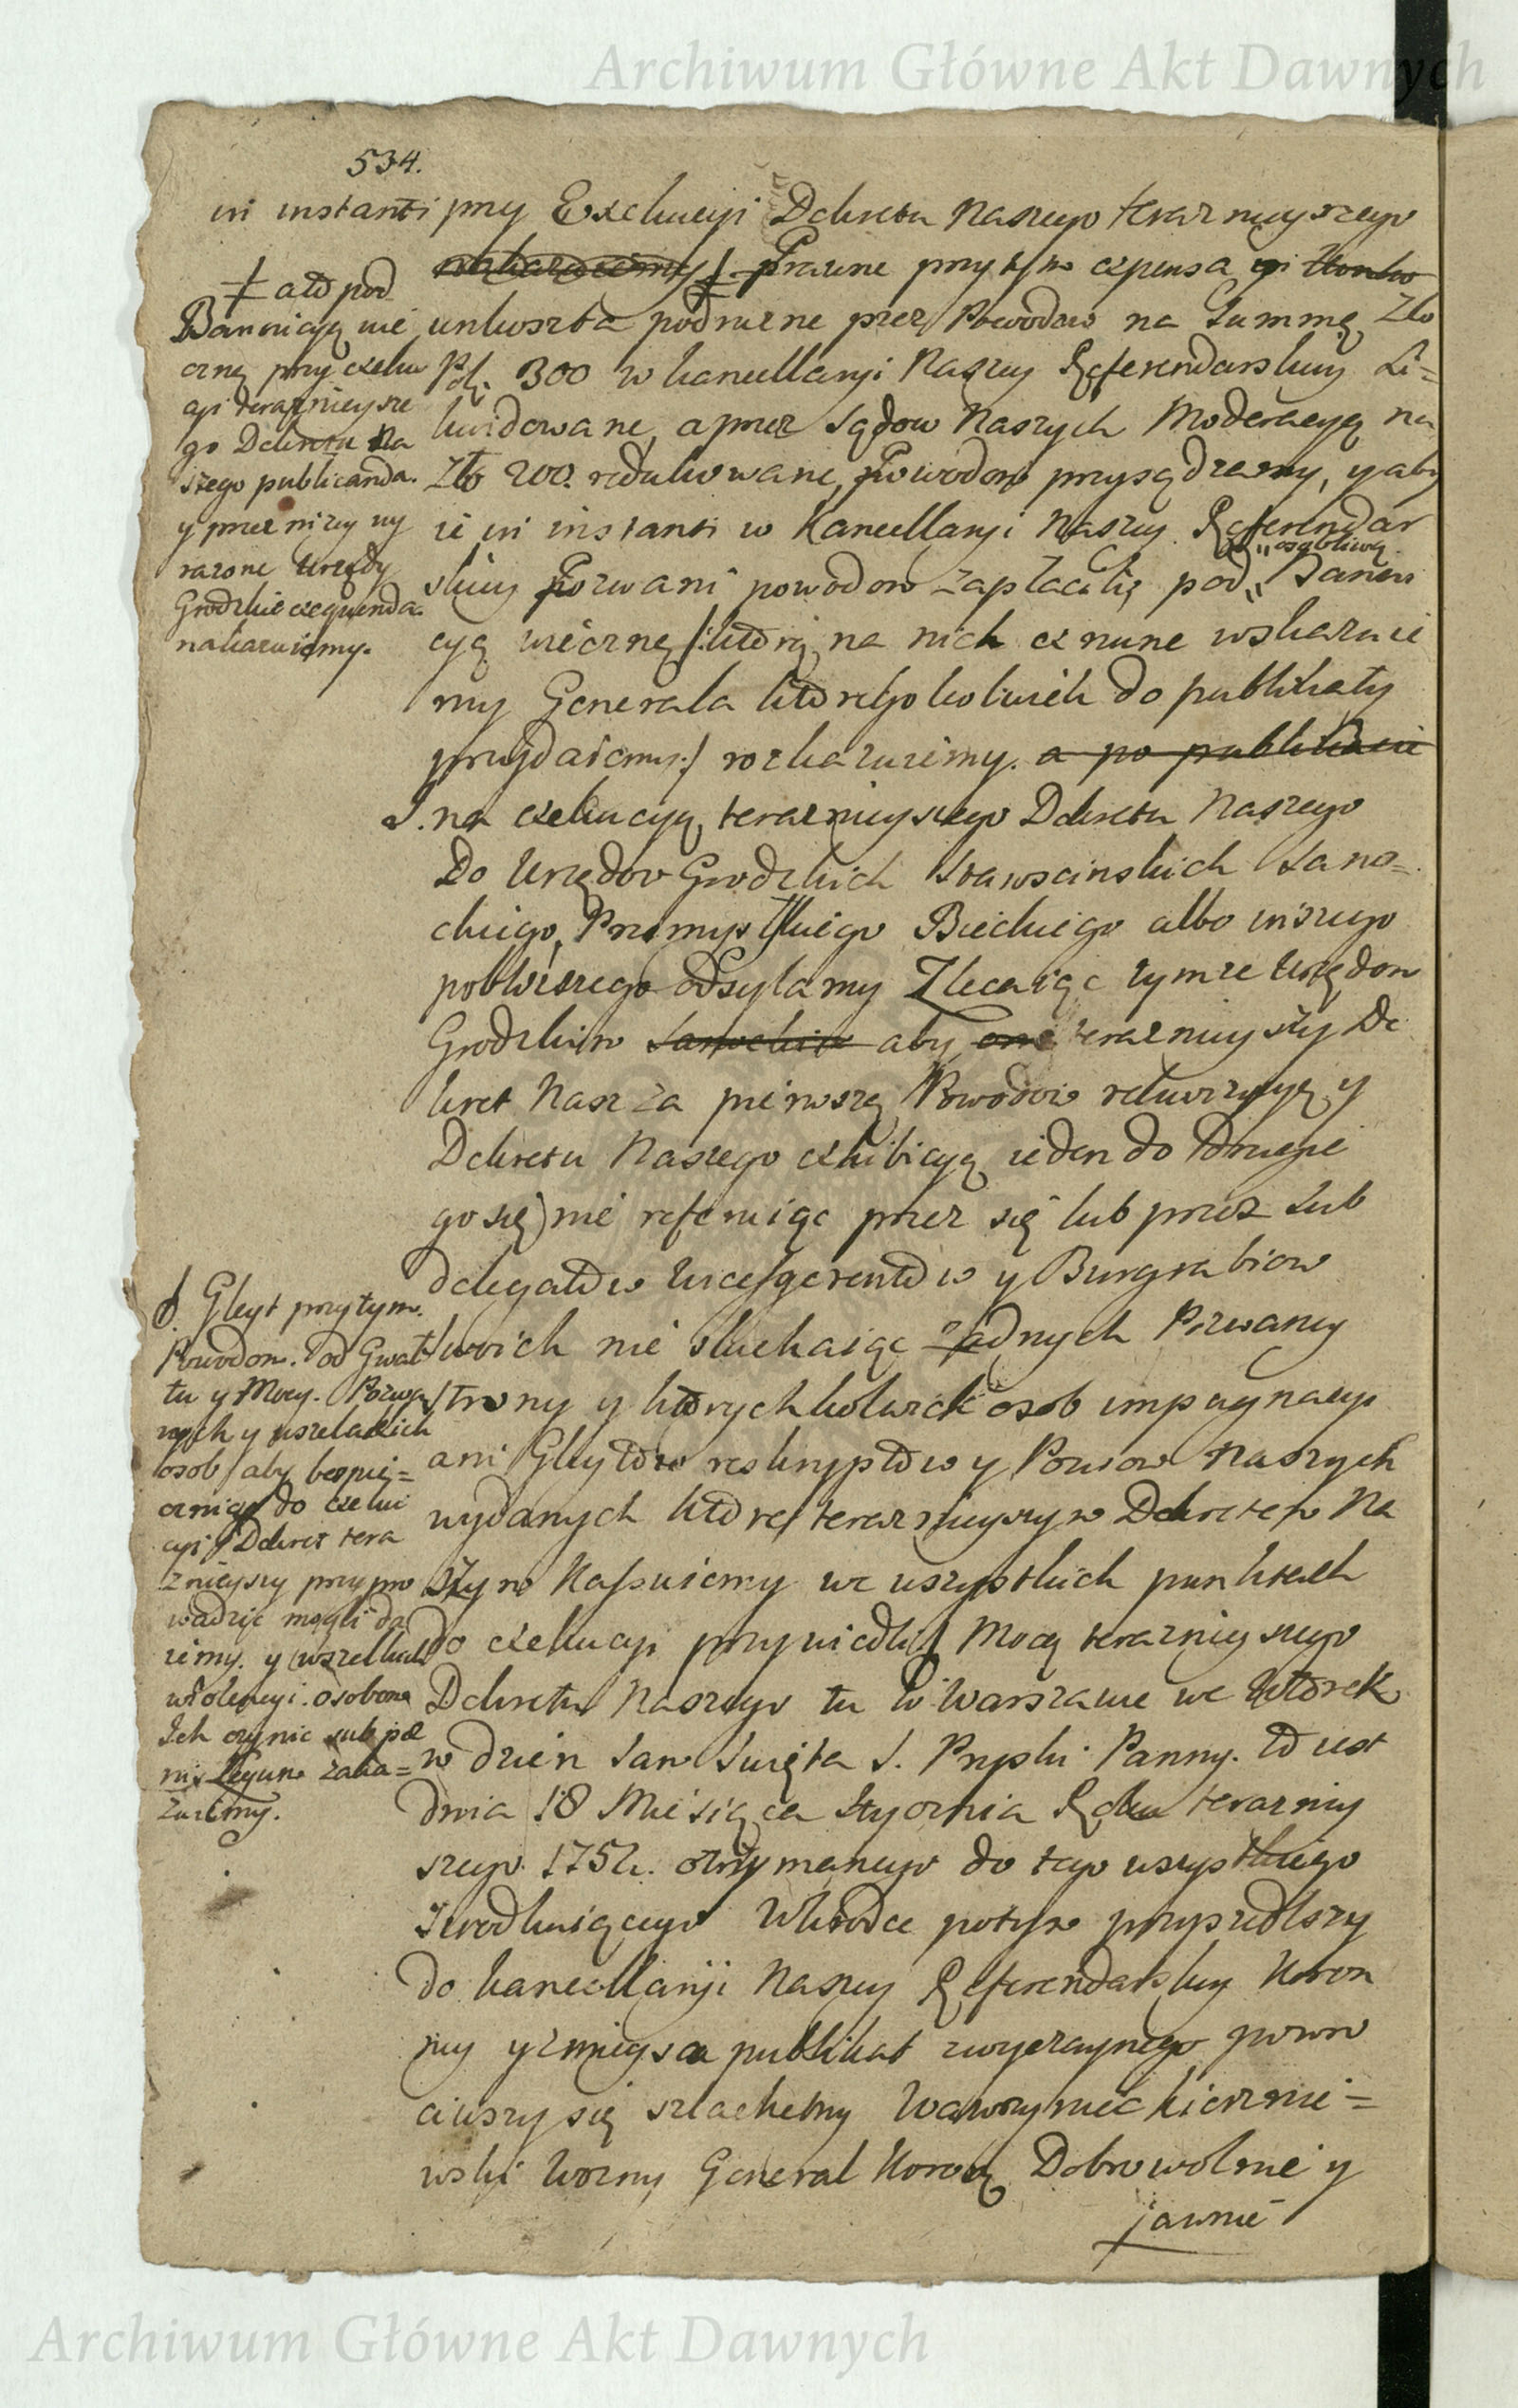 Archiwum Główne Akt Dawnych
534.
in instanti przy Exekucyi Dekretu Naszego teraznieyszego
rozkazuiemy ǂ Prawne przytym expensa y Konto
unkoszta podruzne przez Powodow na Summę Zło
Pol. 300 w kancellaryi Naszey Referendarskiey Li=
kwidowane, a przez Sądow Naszych Moderacyą na
Zło 200. redukowane, Powodom przysądzamy, y aby
ie in instanti w Kancellaryi Naszey Referendar
skiey Pozwani powodom zapłacili, pod „osobliwą„ Banni
cyą wieczną /: ktorą na nich ex nunc wskazuie
my Generała ktoregokolwiek do publikaty
przydaiemy :/ rozkazuiemy. a po publikacie
J. na exekucyą teraznieyszego Dekretu Naszego
Do Urzędow Grodzkich Starościnskich Sano=
ckiego, Przemyslkiego Bieckiego albo inszego
pobliszego odsyłamy Zlecaiąc tymze Urzędom
Grodzkim Sanockim aby one teraznieyszy De
kret Nasz za pierwszą Powodow rekwizycyą y
Dekretu Naszego exhibicyą ieden do Drugie
go się nie referuiąc przez się lub przez Sub
delegatow Vicesgerentow y Burgrabiow
swoich nie słuchaiąc żadnych Pozwaney
strony y ktorychkolwiek osob impugnacyi
ani Gleytow reskryptow y Pozwow Naszych
wydanych ktore teraznieyszym Dekretem Na
szym Kassuiemy we wszystkich punktach
do exekucyi przywiedli ɸ Mocą teraznieyszego
Dekretu Naszego tu w Warszawie we Wtorek
w dzien Sam Swięta S. Pryski Panny. to iest
dnia 18 Miesiąca Stycznia Roku terazniey
szego 1752. otrzymanego do tego wszystkiego
Szrodkuiącego Wkrodce potym przyszedłszy
do kancellaryi Naszey Referendarskiey Koron
ney y z mieysca publikat zwyczaynego powro
ciwszy się szlachetny Wawrzyniec
wski Wozny Generał Koronny Dobrowolnie y
jawnie
ǂ ato pod
Bannicyą wie
czną przy exeku
cyi teraznieysze
go Dekretu Na
szego publicanda.
y przez nizey wy
razone Urzędy
Grodzkie exequenda
nakazuiemy.
ɸ. Gleyt przytym
Powodom. od Gwał
tu y Mocy. Pozwa
nych y wszelakich
osob / aby bespie=
cznie do exeku
cyi Dekret tera
znieyszy przypro
wadzic mogli da
iemy. y wszelkich
wiolencyi. osobom
Ich czynic sub poe
nis Legum zaka=
zuiemy.
Archiwum Główne Akt Dawnych